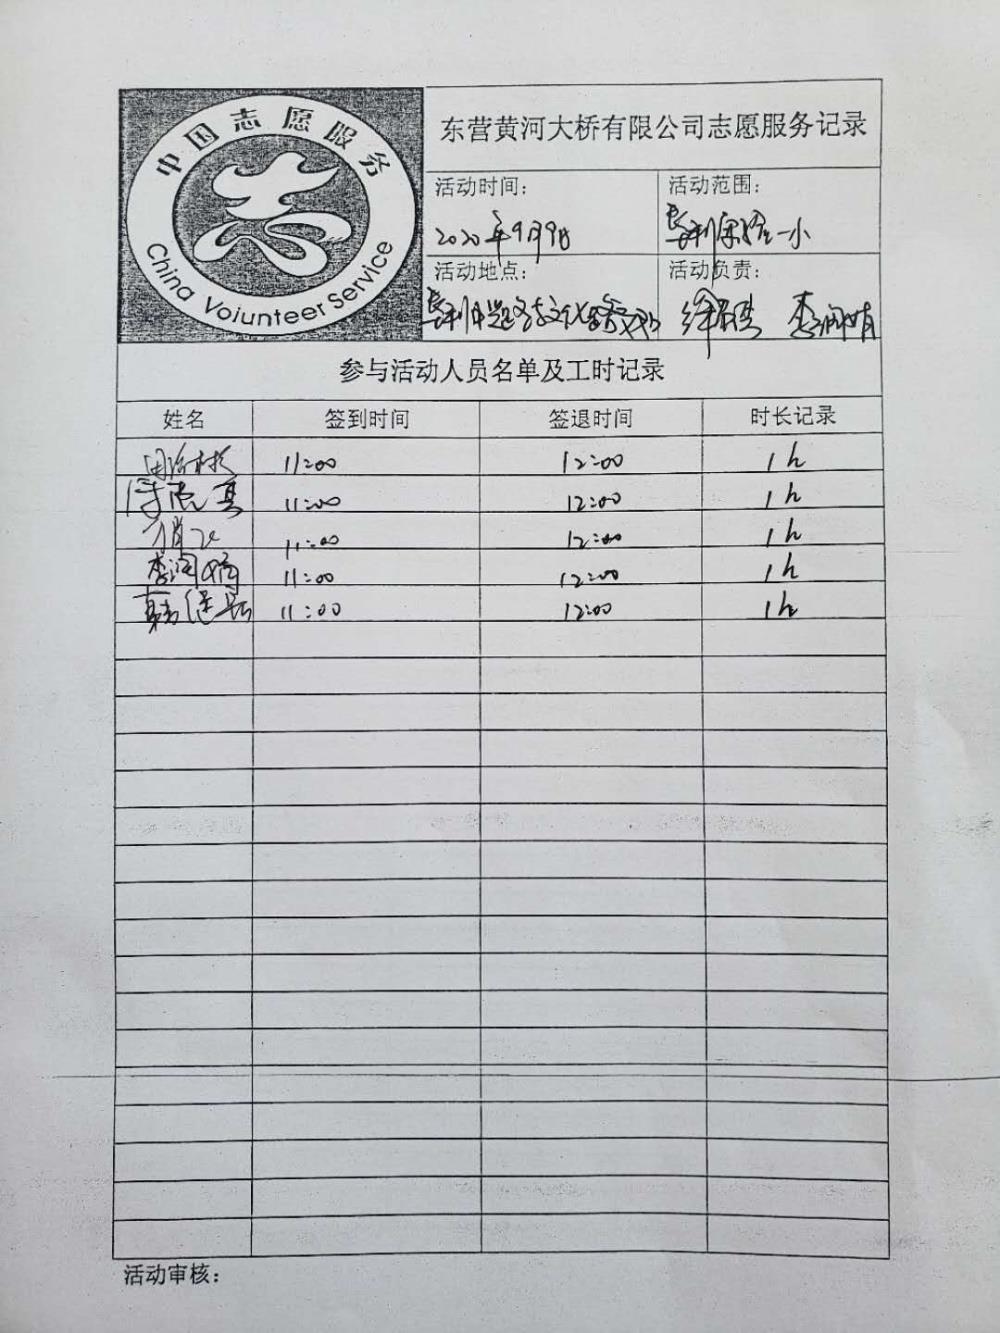 中国志愿服务
China Voiunteer Service
东营黄河大桥有限公司志愿服务记录
活动时间：
2020年9月9日
活动范围：
一小
活动地点：
活动负责：
参与活动人员名单及工时记录
姓名 签到时间 签退时间 时长记录
11:00 12:00 1h
11:00 12:00 1h
11:00 12:00 1h
李润娟 11:00 12:00 1h
11:00 12:00 1h
活动审核：